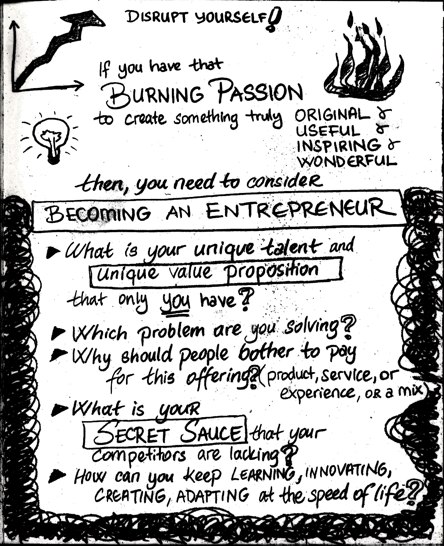 DISRUPT YOURSELF!
If you have that
BURNING PASSION
to create something truly ORIGINAL &
USEFUL &
INSPIRING &
WONDERFUL
then, you need to consider
BECOMING AN ENTREPRENEUR
What is your unique talent and
unique value proposition
that only you have?
Which problem are you solving?
Why should people bother to pay
for this offering? (product, service, or
experience, or a mix)
What is your
SECRET SAUCE that your
competitors are lacking?
How can you keep LEARNING, INNOVATING,
CREATING, ADAPTING at the speed of life?